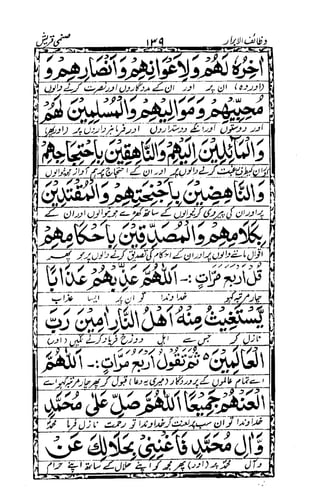 وظائف الابرار ۱۳۹ صنمی قریش
اٰخِرُهٗ لَهُمْ وَلِاَعْوَانِهِمْ وَاَنْصَارِهِمْ وَ
اور ان کے مددگاروں اور نصرت کرنے والوں
مُحِبِّيْهِمْ وَمَوَالِيْهِمْ وَالْمُسَلِّمِيْنَ لَهُمْ
اور دوستوں اور انکے دوستداروں اور فرمانبرداروں پر
وَالْمَآئِلِيْنَ اِلَيْهِمْ وَالنَّاهِقِيْنَ بِاِحْتِجَاجِهِمْ
کرنے والوں پر اور ان کے احتجاج پر
وَالنَّاهِضِيْنَ بِاَجْنِحَتِهِمْ وَالْمُقْتَدِيْنَ
پر اور ان کی پیروی کرنیوالوں کے ساتھ اور ان کے
بِكَلَامِهِمْ وَالْمُصَدِّقِيْنَ بِاَحْكَامِهِمْ
اقوال ماننے والوں پر اور ان کے احکام کی تصدیق کرنے والوں پر
قُلْ اَرْبَعَ مَرَّاتٍ:- اَللّٰهُمَّ عَذِّبْهُمْ عَذَابًا
چار مرتبہ کہو خداوندا تو ان پر ایسا عذاب
يَسْتَغِيْثُ مِنْهُ اَهْلُ النَّارِ اٰمِيْنَ رَبَّ
نازل کر جس سے اہل دوزخ فریاد کریں
الْعَالَمِيْنَ ۵ ثُمَّ تَقُوْلُ اَرْبَعَ مَرَّاتٍ:- اَللّٰهُمَّ
اے تمام عالموں کے پروردگار (میری دعا) قبول کر پھر چار مرتبہ کہو اے
الْعَنْهُمْ جَمِيْعًا اَللّٰهُمَّ صَلِّ عَلٰى مُحَمَّدٍ
خداوندا تو ان سب پر لعنت کر خداوندا تو رحمت نازل فرما محمدؐ
وَّاٰلِ مُحَمَّدٍ فَاَغْنِنِيْ بِحَلَالِكَ عَنْ
وآل محمدؐ پر (اور) پھر مجھ کو اپنے حلال کے ساتھ اپنے حرام